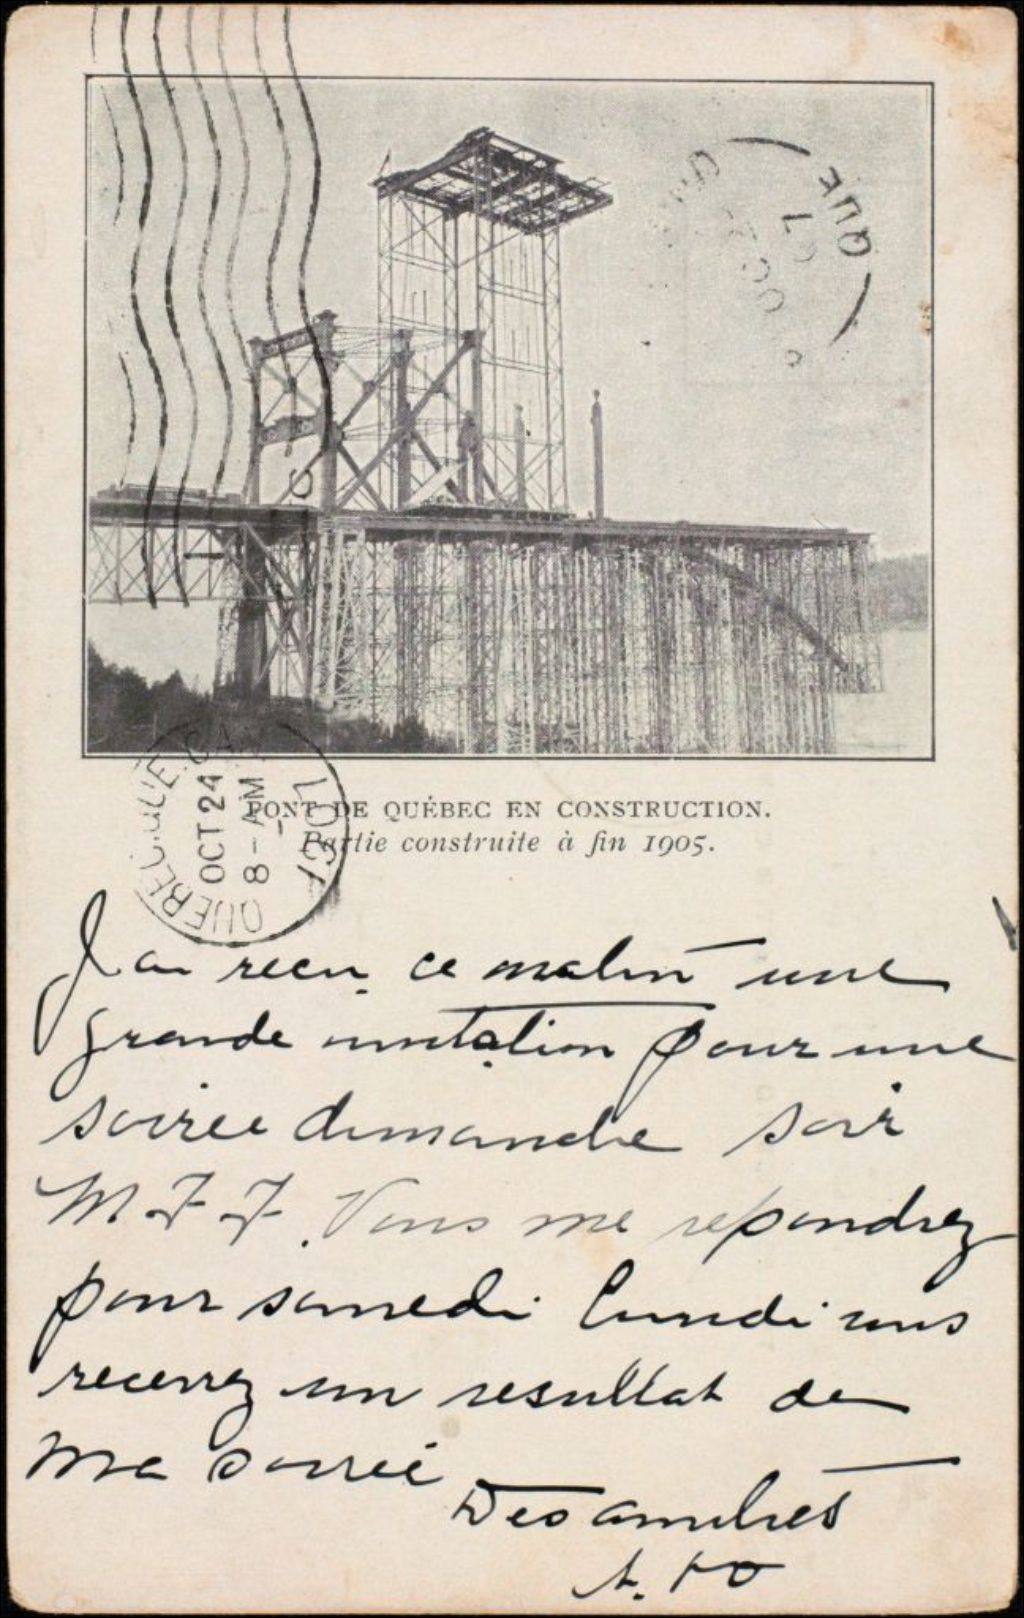 QUE
OCT
07
QUEBEC. QUE. CAN.
OCT 24
8-AM
1907
PONT DE QUÉBEC EN CONSTRUCTION.
Partie construite à fin 1905.
J ai recu ce matin une
grande invitation pour une
soirée dimanche soir
M. J J. Vous me repondrez
pour samedi lundi vous
recevrez un resultat de
ma soirée
Des amities